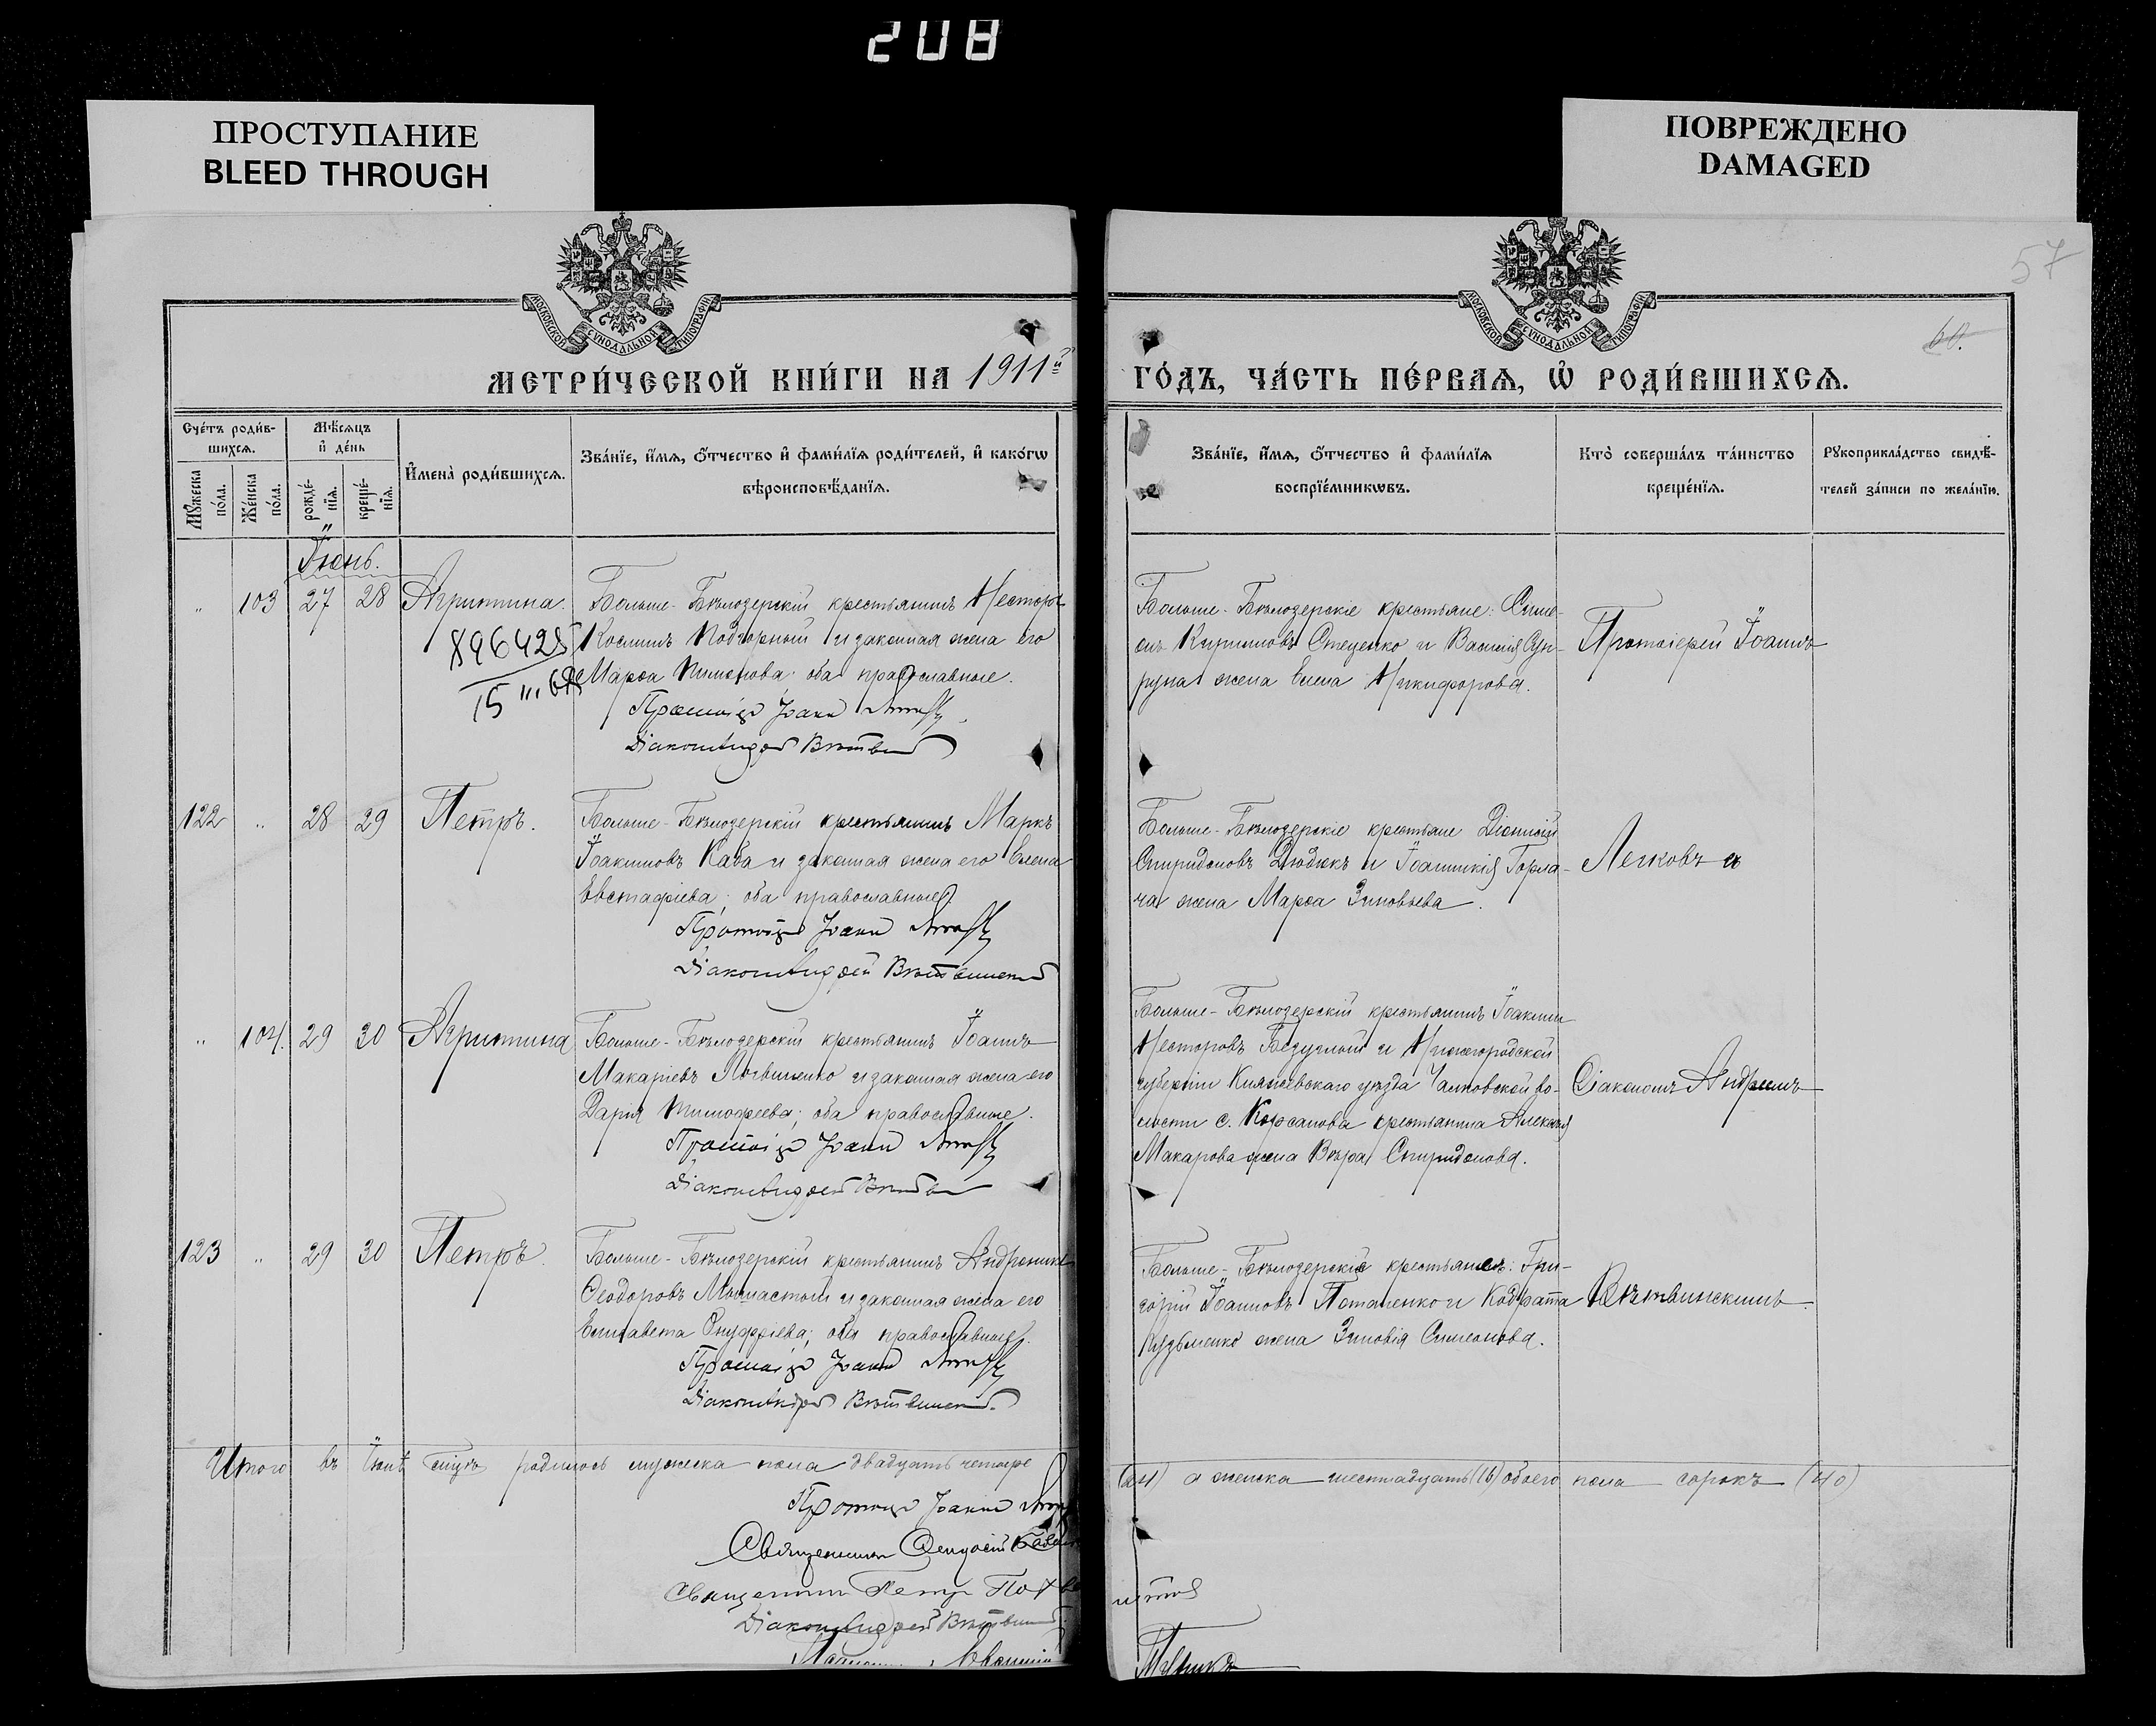 208
ПРОСТУПАНИЕ
BLEED THROUGH
ПОВРЕЖДЕНО
DAMAGED
57
60.
МОСКОВСКОЙ СѴНОДАЛЬНОЙ ТИПОГРАФІИ
МОСКОВСКОЙ СѴНОДАЛЬНОЙ ТИПОГРАФІИ
МЕТРИ́ЧЕСКОЙ КНИ́ГИ НА 1911й ГО́ДЪ, ЧА́СТЬ ПЕ́РВАѦ, Ѡ҆ РОДИ́ВШИХСѦ.
Сче́тъ роди́в-
шихсѧ.
Мꙋ́жеска по́ла.
Же́нска по́ла.
Мѣ́сѧцъ
и҆ де́нь
рожде́-
нїѧ.
креще́-
нїѧ.
И҆мена̀ роди́вшихсѧ.
Зва́нїе, и҆́мѧ, ѻ҆́тчество и҆ фами́лїѧ роди́телей, и҆ како́гѡ
вѣроисповѣ́данїѧ.
Зва́нїе, и҆́мѧ, ѻ҆́тчество и҆ фами́лїѧ
воспрїе́мникѡвъ.
Кто̀ соверша́лъ та́инство
креще́нїѧ.
Рꙋкоприкла́дство свидѣ́-
телей за́писи по жела́нїю.
Іюнь.
„ 103 27 28 Агрипина.
Больше-Бѣлозерскій крестьянинъ Несторъ
Косминъ Подгорный и законная жена его
Марѳа Пименова; оба православные.
Протоіер Іоаннъ
Діаконъ Андрей Вѣтвин
896428
15 III 68
Больше-Бѣлозерскіе крестьяне: Симе-
онъ Кирилловъ Стеценко и Василія Суп-
руна жена Елена Никифорова.
Протоіерей Іоаннъ
122 „ 28 29 Петръ.
Больше-Бѣлозерскій крестьянинъ Маркъ
Іоакимовъ Каба и законная жена его Елена
Евстафіева; оба православные.
Протоіер Іоаннъ
Діаконъ Андрей Вѣтвинскій
Больше-Бѣлозерскіе крестьяне Діонисій
Спиридоновъ Дюдюкъ и Іоанникія Горла-
ча жена Марѳа Зиновьева.
„ 104. 29 30 Агрипина
Больше-Бѣлозерскій крестьянинъ Іоаннъ
Макаріевъ Логвиненко и законная жена его
Дарія Тимофеева; оба православные.
Протоіер Іоаннъ
Діаконъ Андрей Вѣтвин
Больше-Бѣлозерскій крестьянинъ Іоакимъ
Несторовъ Безуглый и Нижегородской
губерніи Княгевскаго уѣзда
лости с. крестьянина Алексѣя
Макарова жена Вѣра Спиридонова.
Діакономъ Андреемъ
123 „ 29 30 Петръ.
Больше-Бѣлозерскій крестьянинъ Андроникъ
Ѳеодоровъ и законная жена его
Елисавета Онуфріева; оба православные.
Протоіер Іоаннъ
Діаконъ Андрей Вѣтвинскій.
Больше-Бѣлозерскіе крестьяне: Гри-
горій Іоанновъ Потапенко и Кодрата
Кузьменко жена Зиновія Симеонова.
Вѣтвинскимъ.
Итого въ Іюнѣ мѣсяцѣ родилось мужеска пола двадцать четыре (24) а женска шестнадцать (16) обоего пола сорокъ (40)
Протоіер Іоаннъ
Священникъ Ѳеодосій
Священникъ Петръ
Діаконъ Андрей Вѣтвинскій